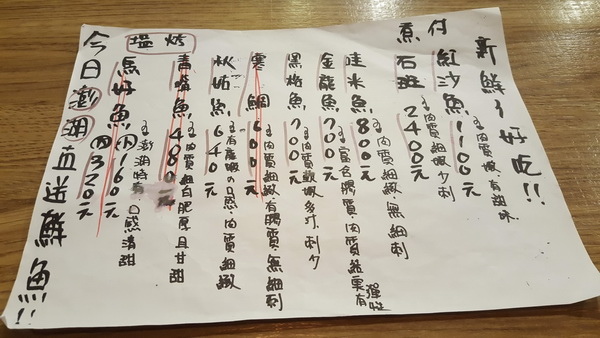 新鮮ㄟ好吃!!
付
紅沙魚1100元
肉質嫩,有甜味
煮
石斑2400元
肉質細緻少刺
哇米魚800元
肉質細緻,無細刺
金龍魚700元
富含膠質,肉質結實有彈性
黑格魚700元
肉質軟嫩多汁,刺少
寒鯛600元
肉質細緻有膠質,無細刺
秋姑魚640元
肉質細緻
塩烤
青嘴魚480元
肉質細白肥厚且甘甜
馬好魚
160元
320元
澎湖特有,口感清甜
今日澎湖直送
鮮魚!!